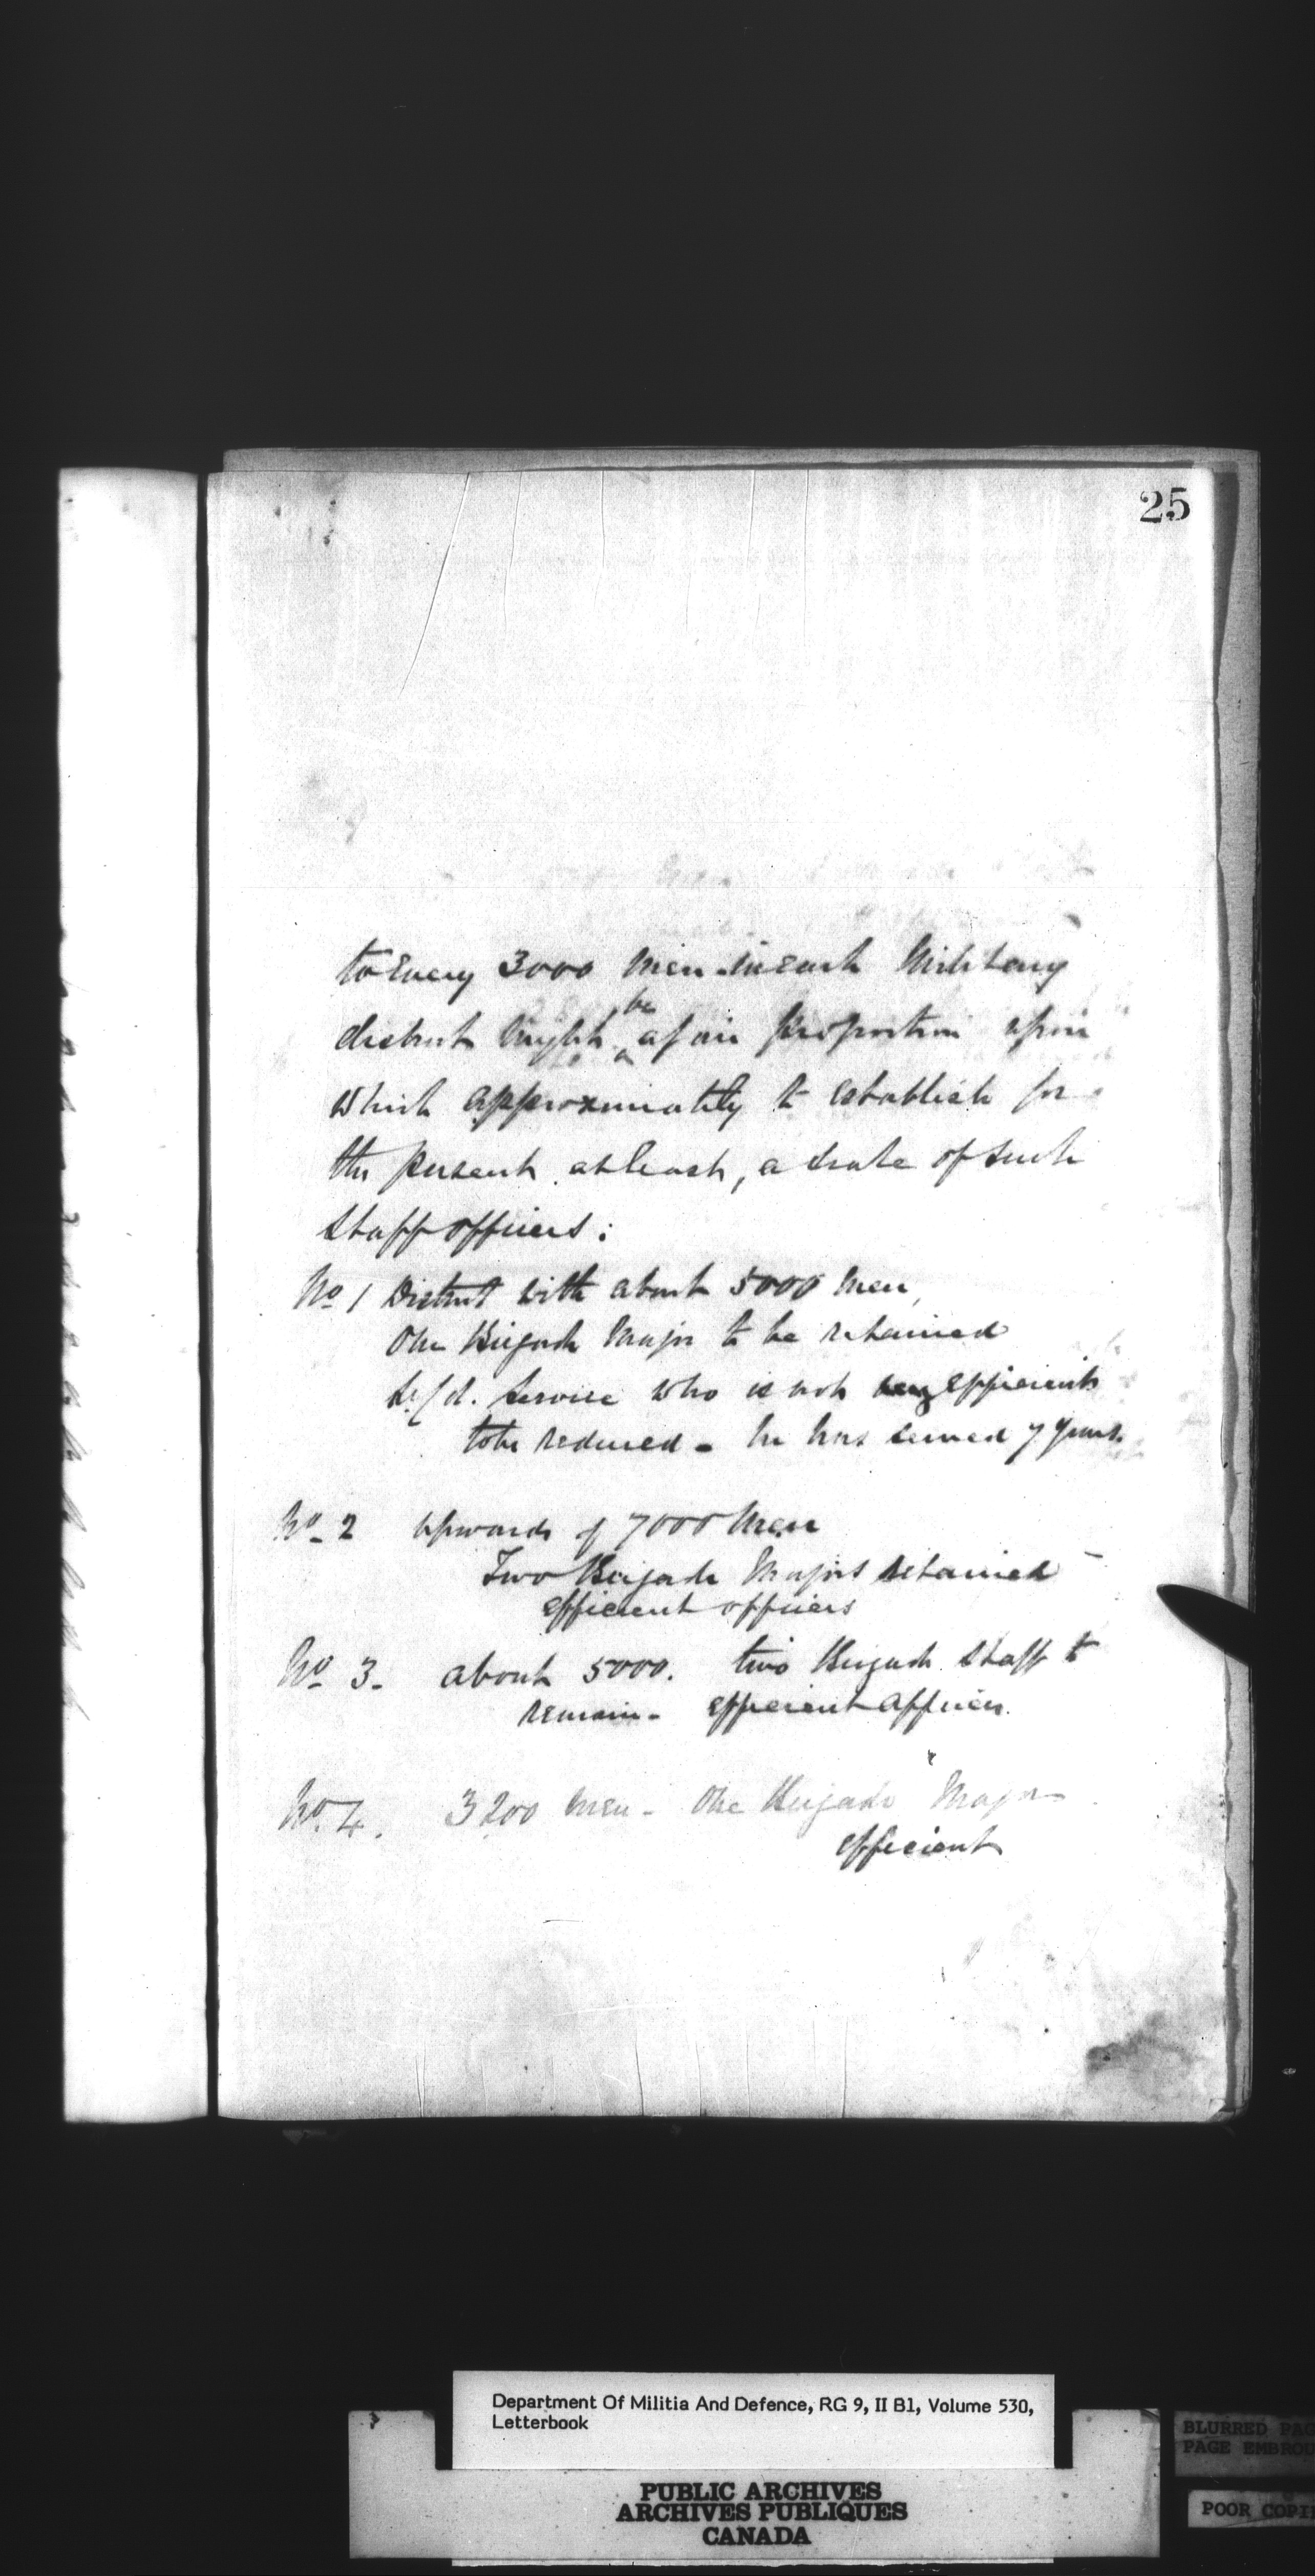 25
to Every 3000 men in each Military
district might be a fair proportion upon
which approximately to establish for
the present at least, a scale of such
Staff officers:
No 1 District with about 5000 men,
One Brigade Major to be retained
Service who is not very efficient
to be reduced - he has served 7 years.
No. 2 upwards of 7000 Men
Two Brigade Majors retained -
efficient officers
No 3. about 5000. two Brigade Staff to
remain - efficient officers.
No. 4. 3200 men - One Brigade Major
efficient
Department Of Militia And Defence, RG 9, II B1, Volume 530,
Letterbook
PUBLIC ARCHIVES
ARCHIVES PUBLIQUES
CANADA
BLURRED PAG
PAGE EMBROU
POOR COPI